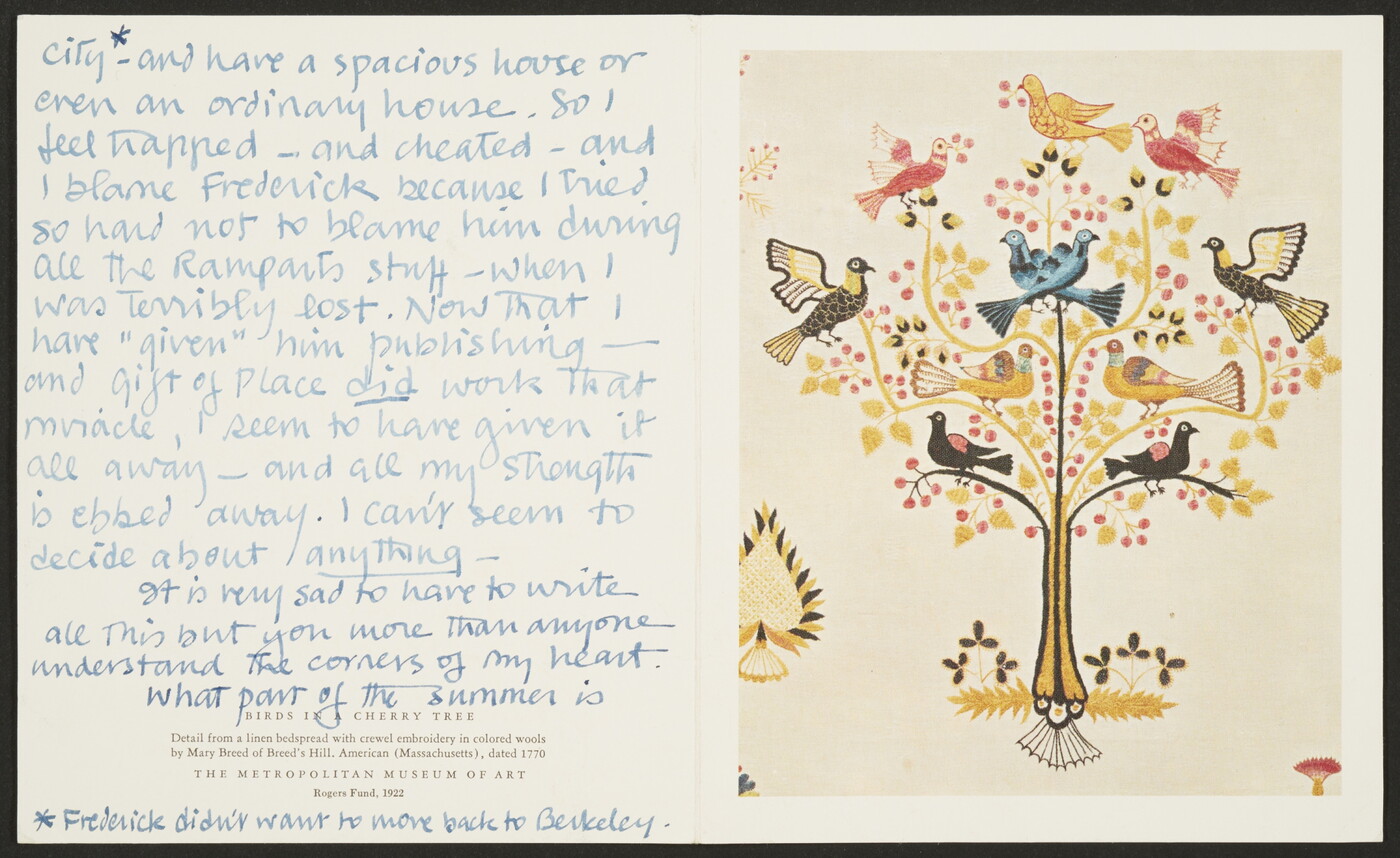 city* - and have a spacious house or
even an ordinary house. So I
feel trapped - and cheated - and
I blame Frederick because I tried
so hard not to blame him during
all the Ramparts stuff - when I
was terribly lost. Now that I
have "given" him publishing —
and Gift of Place did work that
miracle, I seem to have given it
all away - and all my strength
is ebbed away. I can't seem to
decide about anything -
It is very sad to have to write
all this but you more than anyone
understand the corners of my heart.
What part of the summer is
BIRDS IN A CHERRY TREE
Detail from a linen bedspread with crewel embroidery in colored wools
by Mary Breed of Breed's Hill. American (Massachusetts), dated 1770
THE METROPOLITAN MUSEUM OF ART
Rogers Fund, 1922
* Frederick didn't want to move back to Berkeley.